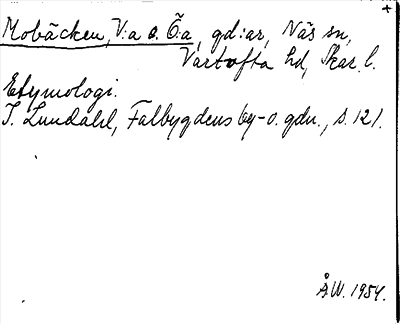 +
Mobäcken, V:a o. Ö:a, gd:ar, Näs sn,
Vartofta hd, Skar. l.
Etymologi.
I. Lundahl, Falbygdens by- o. gdn., s. 121.
ÅW. 1954.